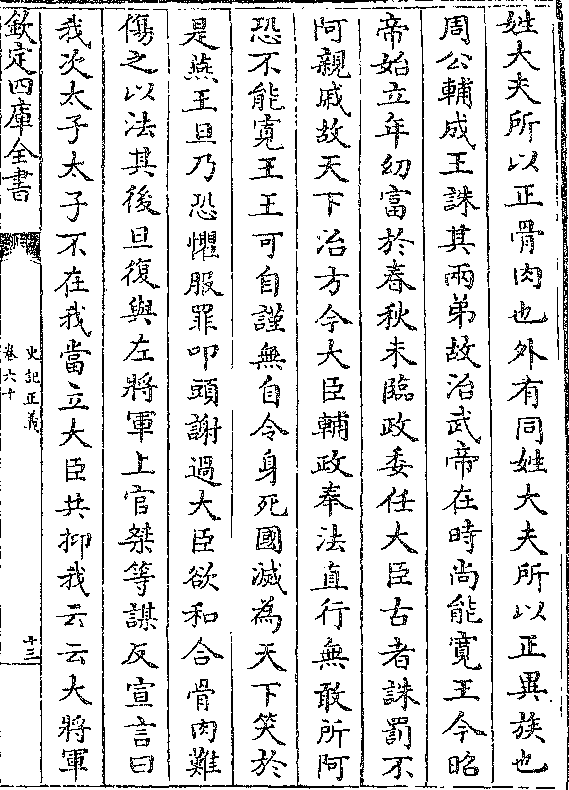 姓大夫所以正骨肉也外有同姓大夫所以正異族也
周公輔成王誅其兩弟故治武帝在時尚能寛王今昭
帝始立年幼富於春秋未臨政委任大臣古者誅罰不
阿親戚故天下治方今大臣輔政奉法直行無敢所阿
恐不能寛王王可自謹無自令身死國滅為天下笑於
是燕王旦乃恐懼服罪叩頭謝過大臣欲和合骨肉難
傷之以法其後旦復與左將軍上官桀等謀反宣言曰
我次太子太子不在我當立大臣共抑我云云大將軍
欽定四庫全書
史記正義
卷六十
十三